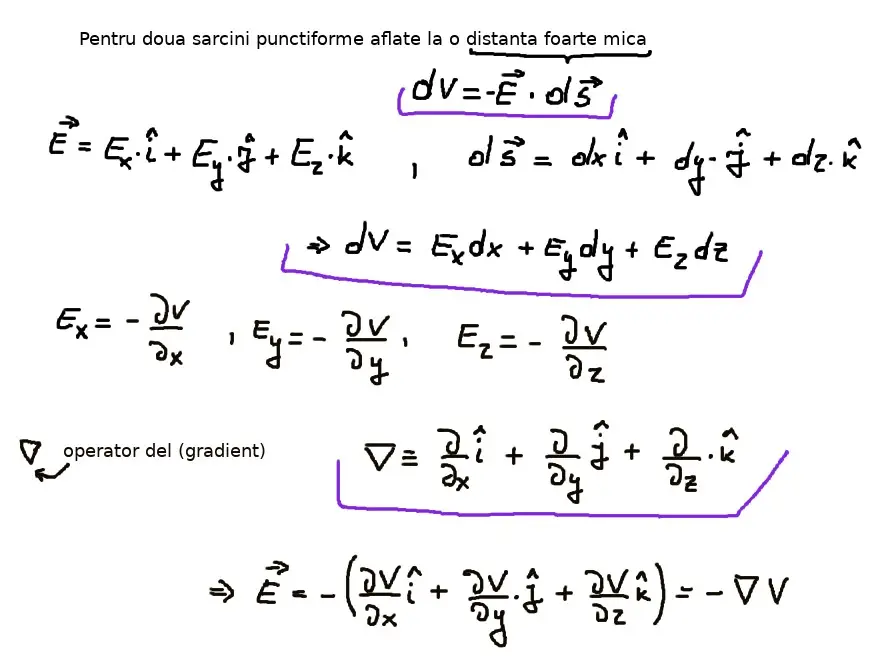 Pentru doua sarcini punctiforme aflate la o distanta foarte mica
dV = -E⃗ · ds⃗
E⃗ = Eₓ·î + E_y·ĵ + E_z·k̂ , ds⃗ = dx î + dy·ĵ + dz·k̂
⇒ dV = Eₓdx + E_y dy + E_z dz
Eₓ = - ∂V/∂x , E_y = - ∂V/∂y , E_z = - ∂V/∂z
∇ operator del (gradient) ∇ ≡ ∂/∂x î + ∂/∂y ĵ + ∂/∂z · k̂
⇒ E⃗ = -(∂V/∂x î + ∂V/∂y · ĵ + ∂V/∂z k̂) = - ∇V